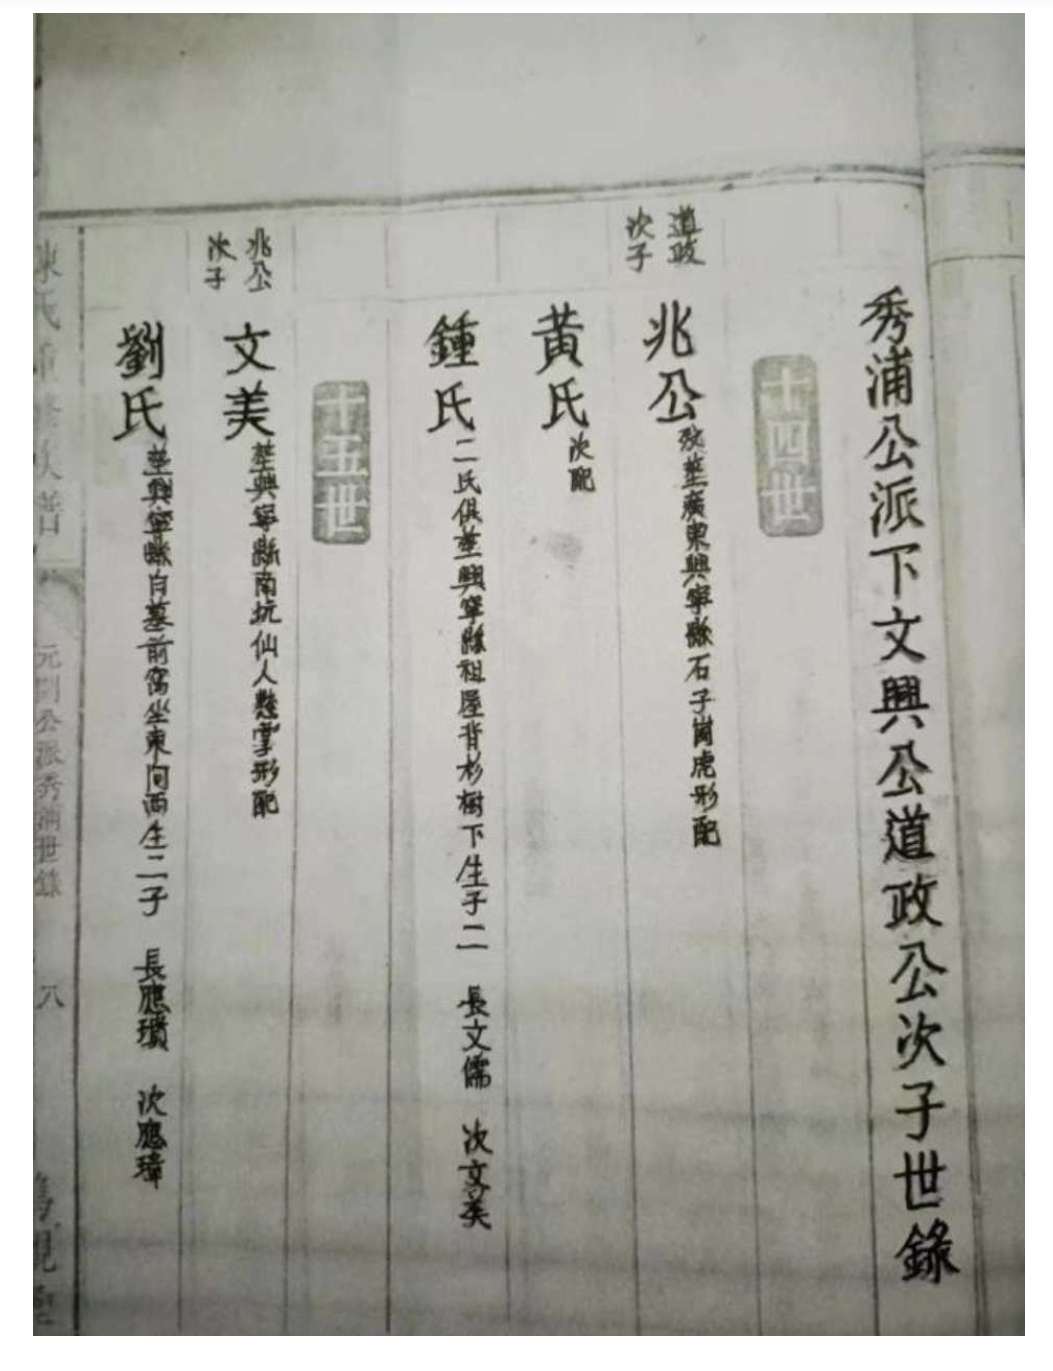 秀浦公派下文興公道政公次子世錄
十四世
道政次子
兆公
改塟廣東興寧縣石子崗虎形配
黃氏
次配
鍾氏
二氏俱塟興寧縣祖屋背杉樹下生子二 長文儒 次文美
十五世
兆公次子
文美
塟興寧縣南坑仙人掌形配
劉氏
塟興寧縣白墓前窩坐東向西生二子 長應 次應瑋
陳氏重修族譜
元剛公派秀浦世錄
八